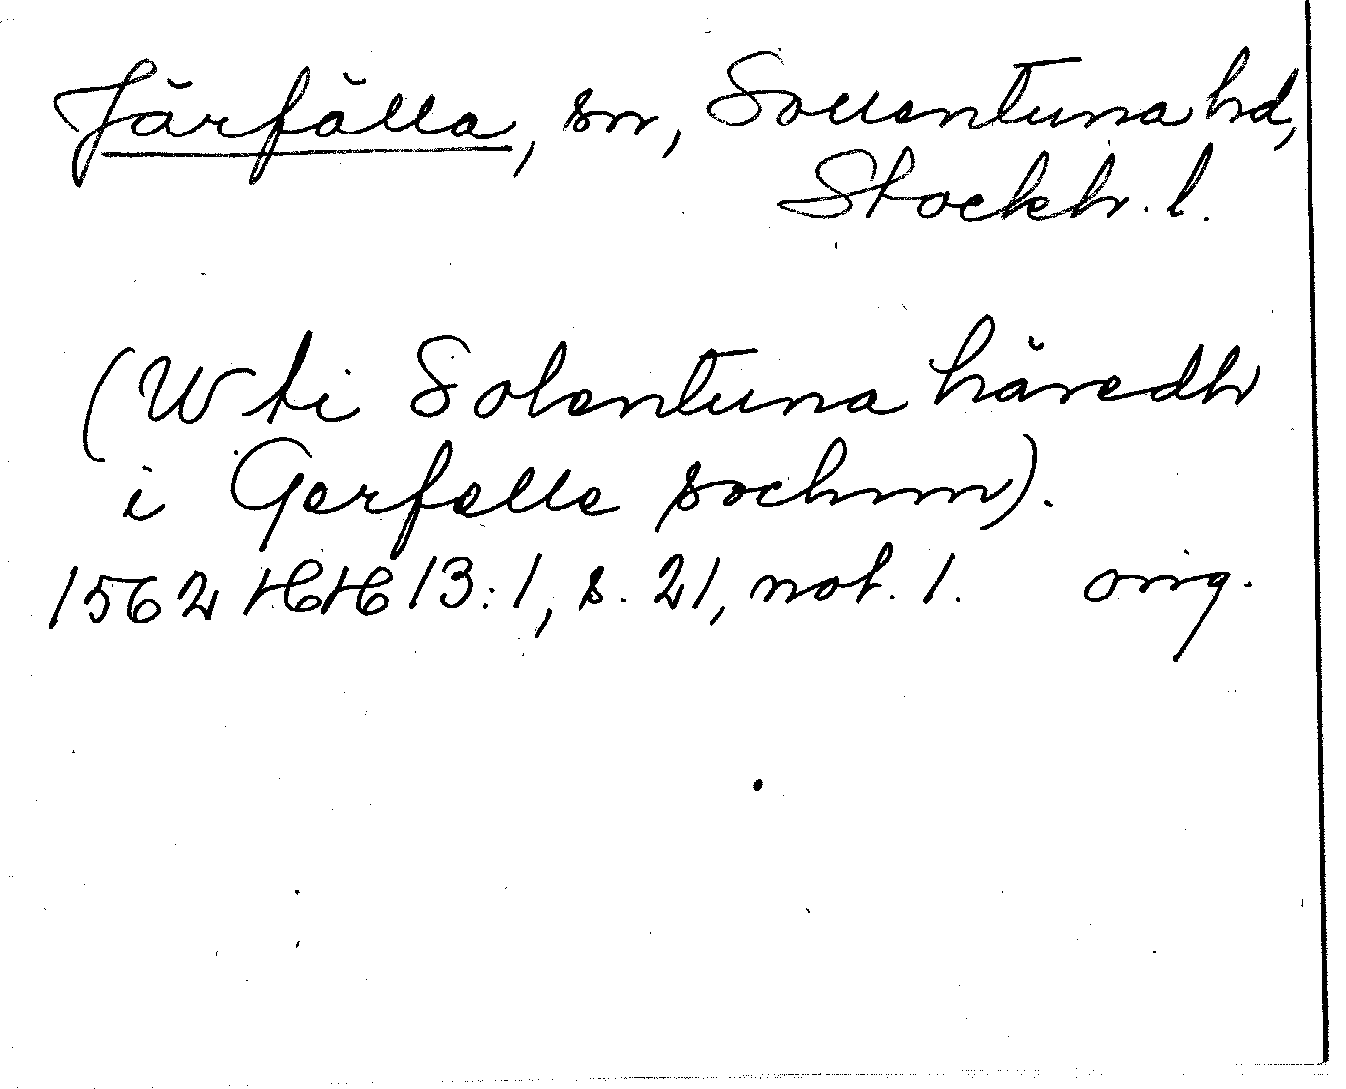 Järfälla, sn, Sollentuna hd,
Stockh. l.
(W ti Solentuna häredh
i Gerfelle sochnn).
1562 HH 13:1, s. 21, not. 1. orig.